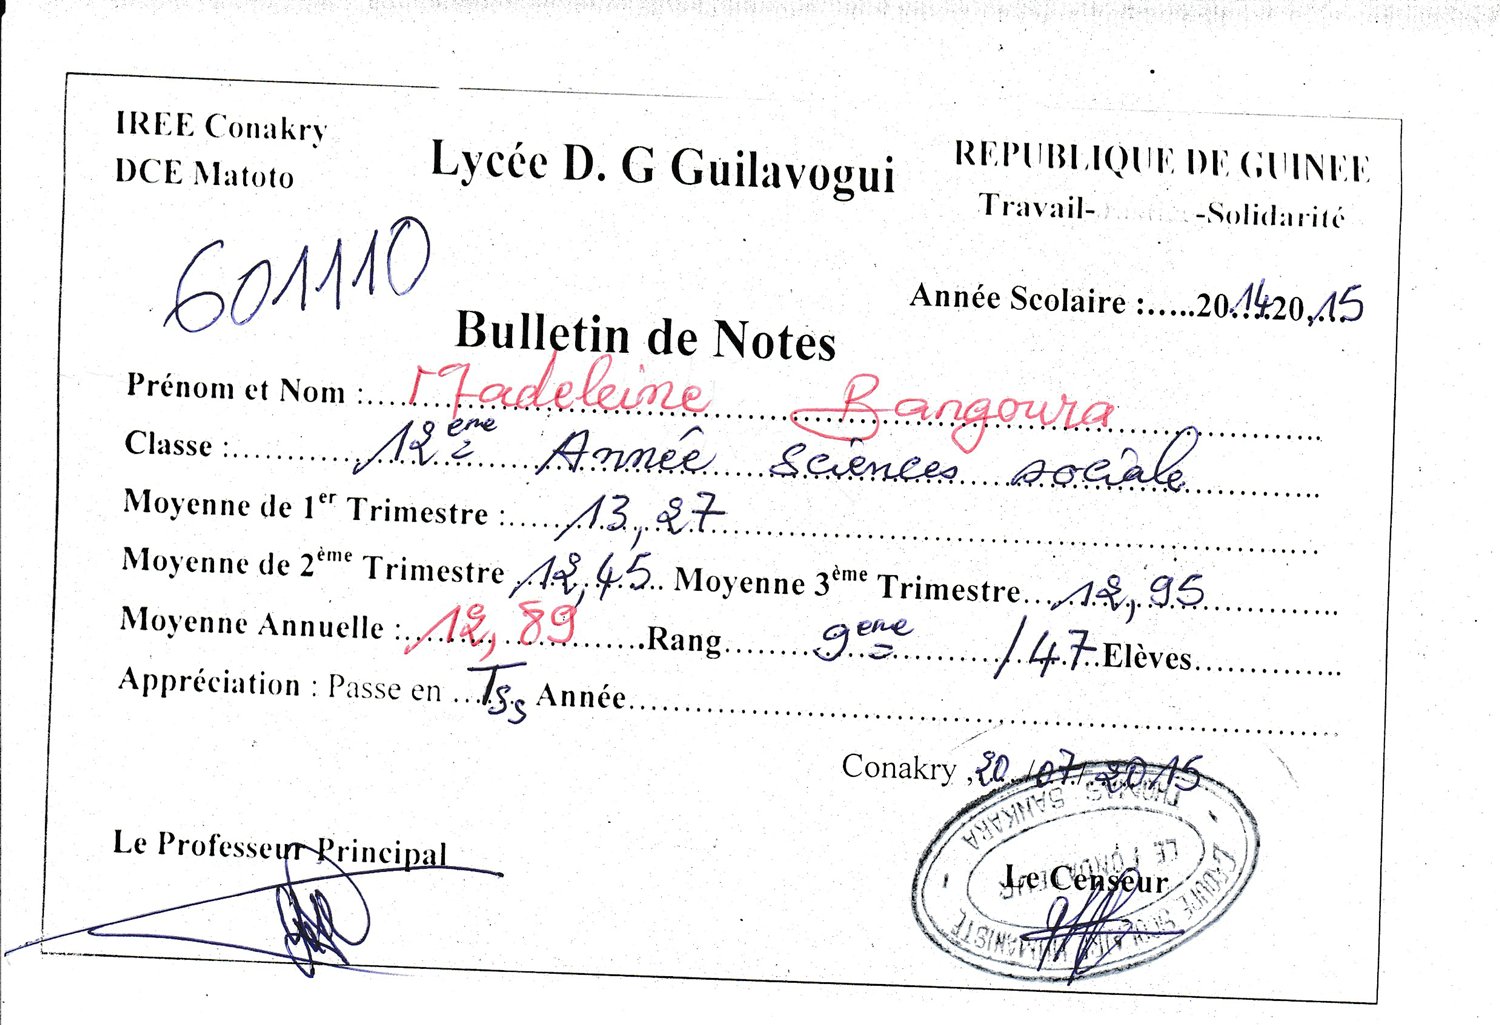 IREE Conakry
DCE Matoto
Lycée D. G Guilavogui
REPUBLIQUE DE GUINEE
Travail-Justice-Solidarité
601110
Année Scolaire :.....2014.20.15
Bulletin de Notes
Prénom et Nom :.... Madeleine Bangoura
Classe :.......... 12ème Année Sciences sociale
Moyenne de 1er Trimestre :..... 13,27
Moyenne de 2ème Trimestre 12,45.. Moyenne 3ème Trimestre.... 12,95
Moyenne Annuelle :.. 12,89 .......Rang...... 9eme ....../47..Elèves..............
Appréciation : Passe en ...Tss Année
Conakry ,20/07/2015
Le Professeur Principal
Le Censeur
GROUPE SCOLAIRE HUMANISTE
THOMAS SANKARA
LE FONDATEUR